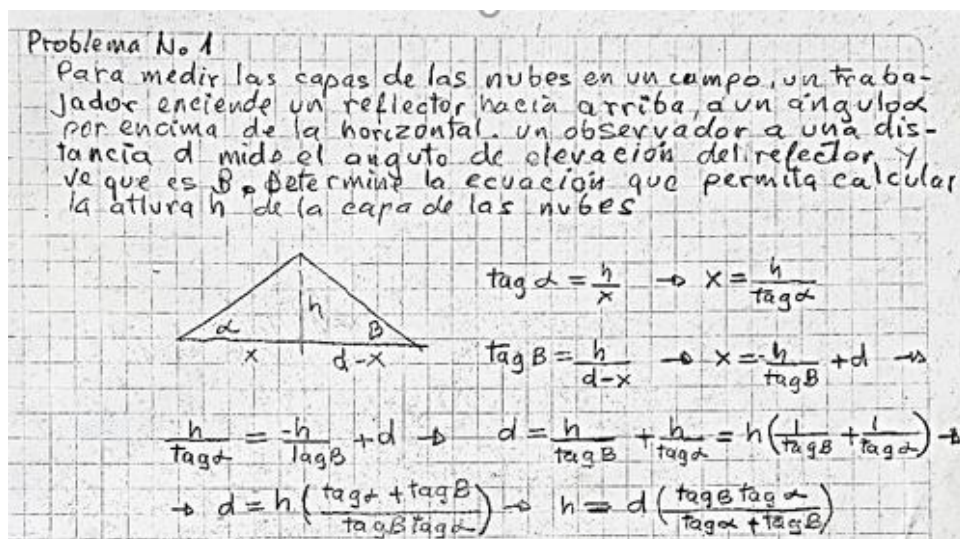 Problema No 1
Para medir las capas de las nubes en un campo, un traba-
jador enciende un reflector hacia arriba, a un ángulo α
por encima de la horizontal. un observador a una dis-
tancia d mide el angulo de elevación del refector, y
ve que es B. Determine la ecuación que permita calcular
la altura h de la capa de las nubes
tag α = h/x → x = h/tag α
h
α B
x d-x
tag B = h/d-x → x = -h/tag B + d →
h/tag α = -h/tag B + d → d = h/tag B + h/tag α = h(1/tag B + 1/tag α) →
→ d = h(tag α + tag B/tag B tag α) → h = d(tag B tag α/tag α + tag B)